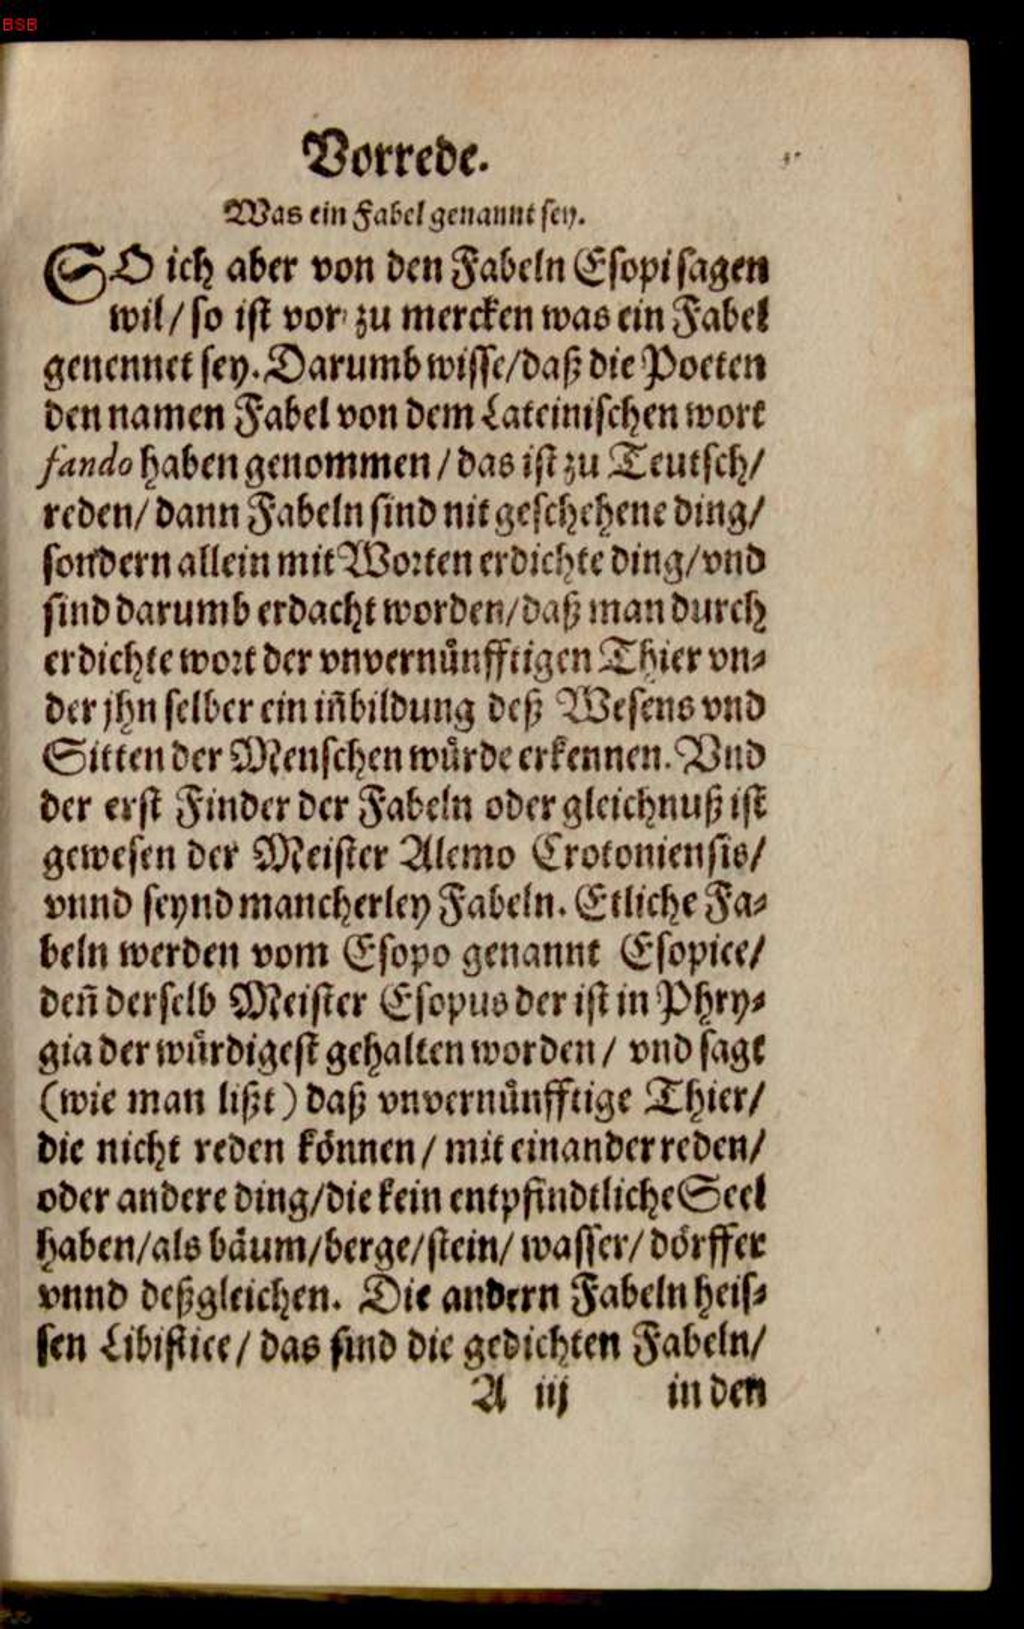 BSB
Vorrede.
Was ein Fabel genannt sey.
SO ich aber von den Fabeln Esopi sagen
wil/ so ist vor zu mercken was ein Fabel
genennet sey. Darumb wisse/ daß die Poeten
den namen Fabel von dem Lateinischen wort
fando haben genommen/ das ist zu Teutsch/
reden/ dann Fabeln sind nit geschehene ding/
sondern allein mit Worten erdichte ding/ vnd
sind darumb erdacht worden/ daß man durch
erdichte wort der vnvernuͤnfftigen Thier vn-
der jhn selber ein iñbildung deß Wesens vnd
Sitten der Menschen wuͤrde erkennen. Vnd
der erst Finder der Fabeln oder gleichnuß ist
gewesen der Meister Alemo Crotoniensis/
vnnd seynd mancherley Fabeln. Etliche Fa-
beln werden vom Esopo genannt Esopice/
deñ derselb Meister Esopus der ist in Phry-
gia der wuͤrdigest gehalten worden/ vnd sagt
(wie man lißt) daß vnvernuͤnfftige Thier/
die nicht reden koͤnnen/ mit einander reden/
oder andere ding/ die kein entpfindtliche Seel
haben/ als baͤum/ berge/ stein/ wasser/ doͤrffer
vnnd deßgleichen. Die andern Fabeln heis-
sen Libistice/ das sind die gedichten Fabeln/
A iij in den